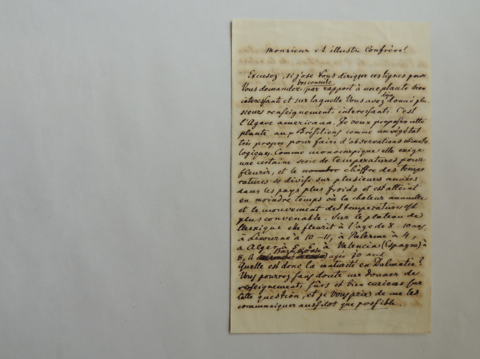 Monsieur et illustre Confrère!
Excusez, si j'ose Vous diriger ces lignes pour
Vous demander par rapport à une plante très
intéressante et sur laquelle Vous avez donné plu
sieurs renseignements intéressants. C'est
l'Agave americana. Je veux proposer cette
plante aux Brésiliens comme un végétal
très propre pour faire d'observations
logiques. Comme monocarpique elle exige
une certaine serie de temperatures pour
fleurir, et le nombre chiffre des tempe
ratures se divise sur plusieurs années
dans les pays plus froids et est atteint
en moindre temps où la chaleur annuelle
et le mouvement des temperatures est
plus convenable. Sur le plateau de
Mexique elle fleurit à l'age de 8-10 ans,
à Livourne à 10-11, à Palerme à 4,
à Alger à 5, à Valencia (Espagne) à
8, à après 70 ans
Quelle est donc la maturité en Dalmatie?
Vous pourrez sans doute me donner de
renseignements sûrs et bien curieux sur
cette question, et je Vous prie de me les
communiquer aussitot que possible.